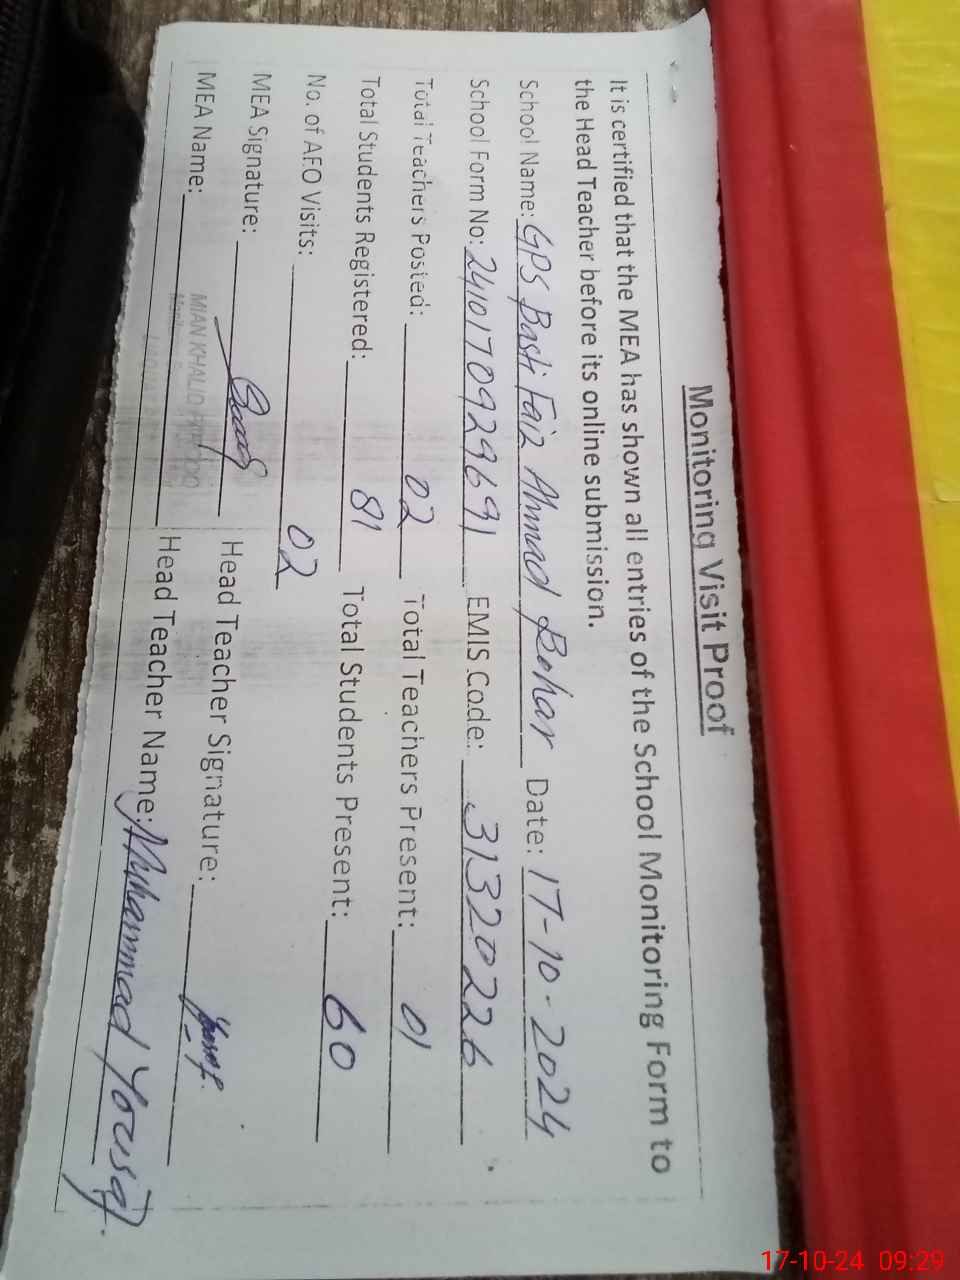 Monitoring Visit Proof
It is certified that the MEA has shown all entries of the School Monitoring Form to
the Head Teacher before its online submission.
School Name: GPS Basti Faiz Ahmad Bohar Date: 17-10-2024
School Form No: 2410170929691 EMIS Code: 31320226
Total Teachers Posted: 02 Total Teachers Present: 01
Total Students Registered: 81 Total Students Present: 60
No. of AEO Visits: 02
MEA Signature: Head Teacher Signature: Yousaf
MEA Name: MIAN KHALID Head Teacher Name: Muhammad Yousaf
17-10-24 09:29